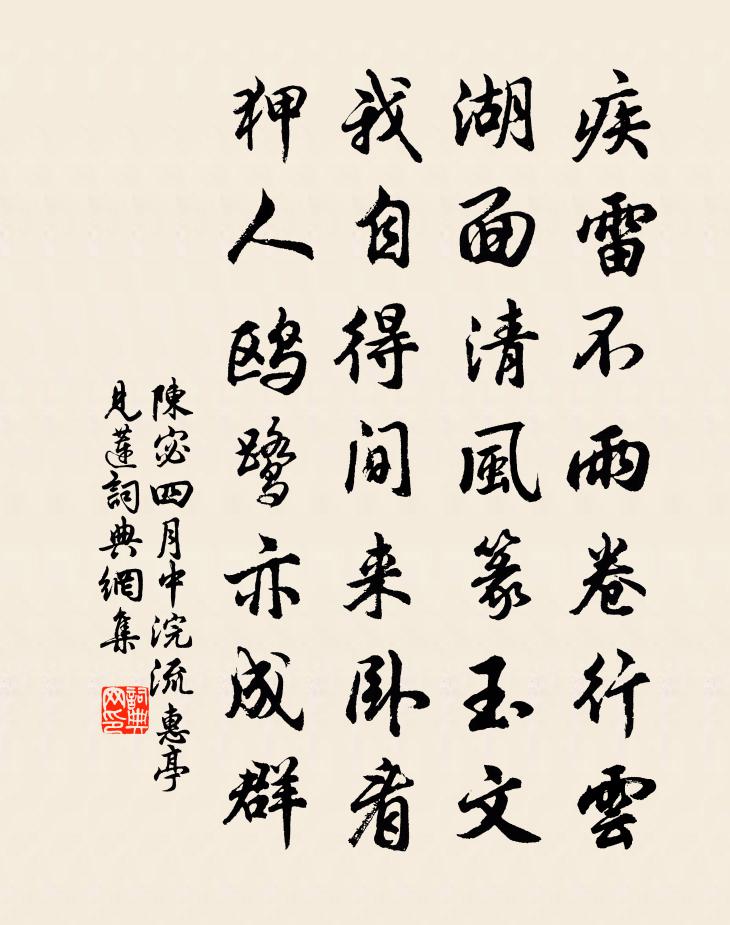 疾雷不雨卷行雲
湖面清風篆玉文
我自得间来卧看
狎人鸥鹭亦成群
陳宓四月中浣流惠亭
見蓮詞典網集
詞典網印